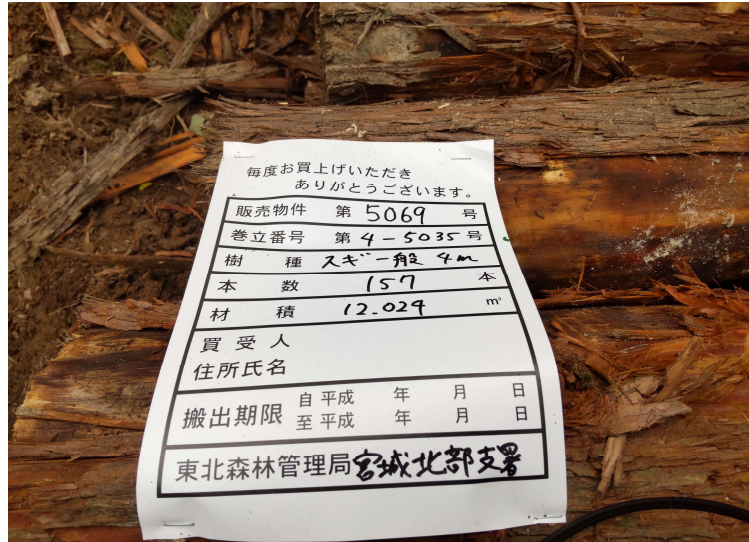 毎度お買上げいただき
ありがとうございます。
販売物件 第 5069 号
巻立番号 第 4-5035 号
樹種 スギ一般 4m
本数 157 本
材積 12.029 m³
買受人
住所氏名
搬出期限 自 平成 年 月 日
至 平成 年 月 日
東北森林管理局 宮城北部支署